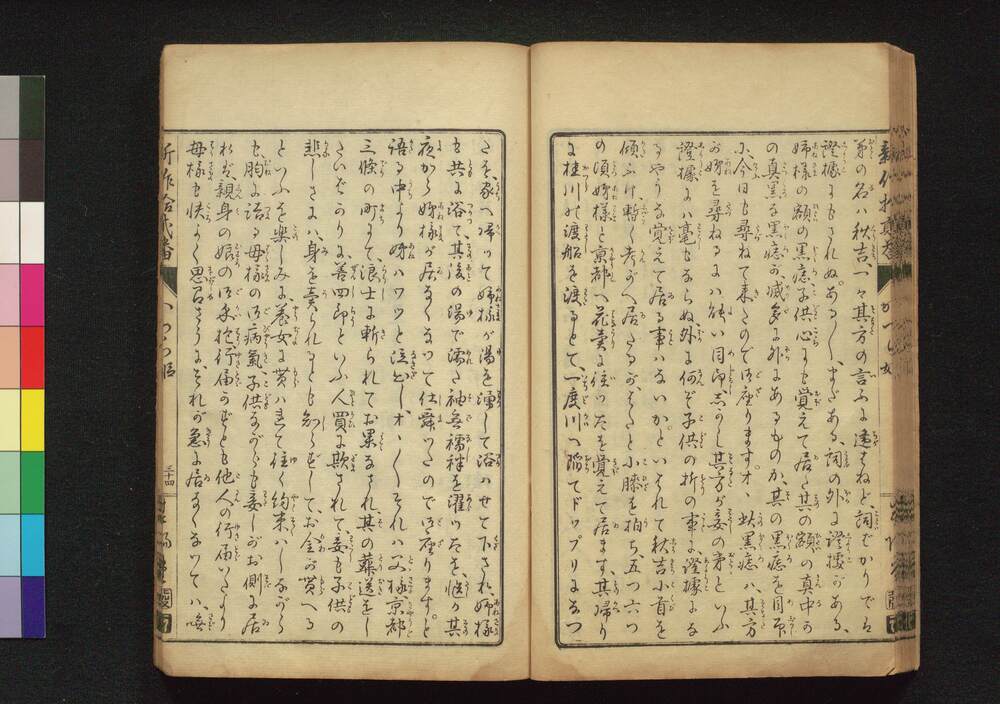 弟の名ハ秋吉、一々其方の言ふに違はねど、詞ばかりでハ
證據にもされぬ。あるし、まだある、詞の外に證據がある、
姉様の額の黒痣、子供心にも覚えて居た其の額の真中の
の真黒な黒痣が滅多に外にあるものか、其の黒痣を目印
に、今日も尋ねて来たので御座ります。オ、此黒痣ハ、其方
が姉を尋ねるにハ能い目印志かし其方が妾の弟といふ
證據にハ毫もならぬ外に何ぞ子供の折の事に、證據にな
るやうな覚えて居る事ハないか。といはれて秋吉小首を
傾ふけ、暫く考がへ居たるが、はたと小膝を拍ち、五つ六つ
の頃姉様と京都へ花賣に往つたを覚えて居ます、其帰り
に桂川の渡船を渡るとて、一度川へ陥てドツプリになつ
たを、家へ帰つて姉様が湯を湧して浴ハせて下され、姉様
も共に浴て、其後の湯で濡た袖無襦袢を濯ツたを、慥か其
夜から姉様が居なくなツて仕舞ツたので御座ります。と
語る中より妾ハワツと泣出し、オ、〳〵それハ父様京都
三條の町にて、浪士に斬られてお果なされ、其の葬送をし
たいばかりに善四郎といふ人買に欺されて、妾も子供の
悲しさにハ、身を賣られしとも知らずして、お金が貰へる
といふを楽しみに、養女に貰ハれて往く約束ハしながら
も、胸に語る母様の御病氣、子供ながらも妾しがお側に居
れば、親身の娘の御孝抱、行届かずとも他人の行届いたより
母様も快よく思召さうに、それが急に居なくなツてハ、嘸
三十四